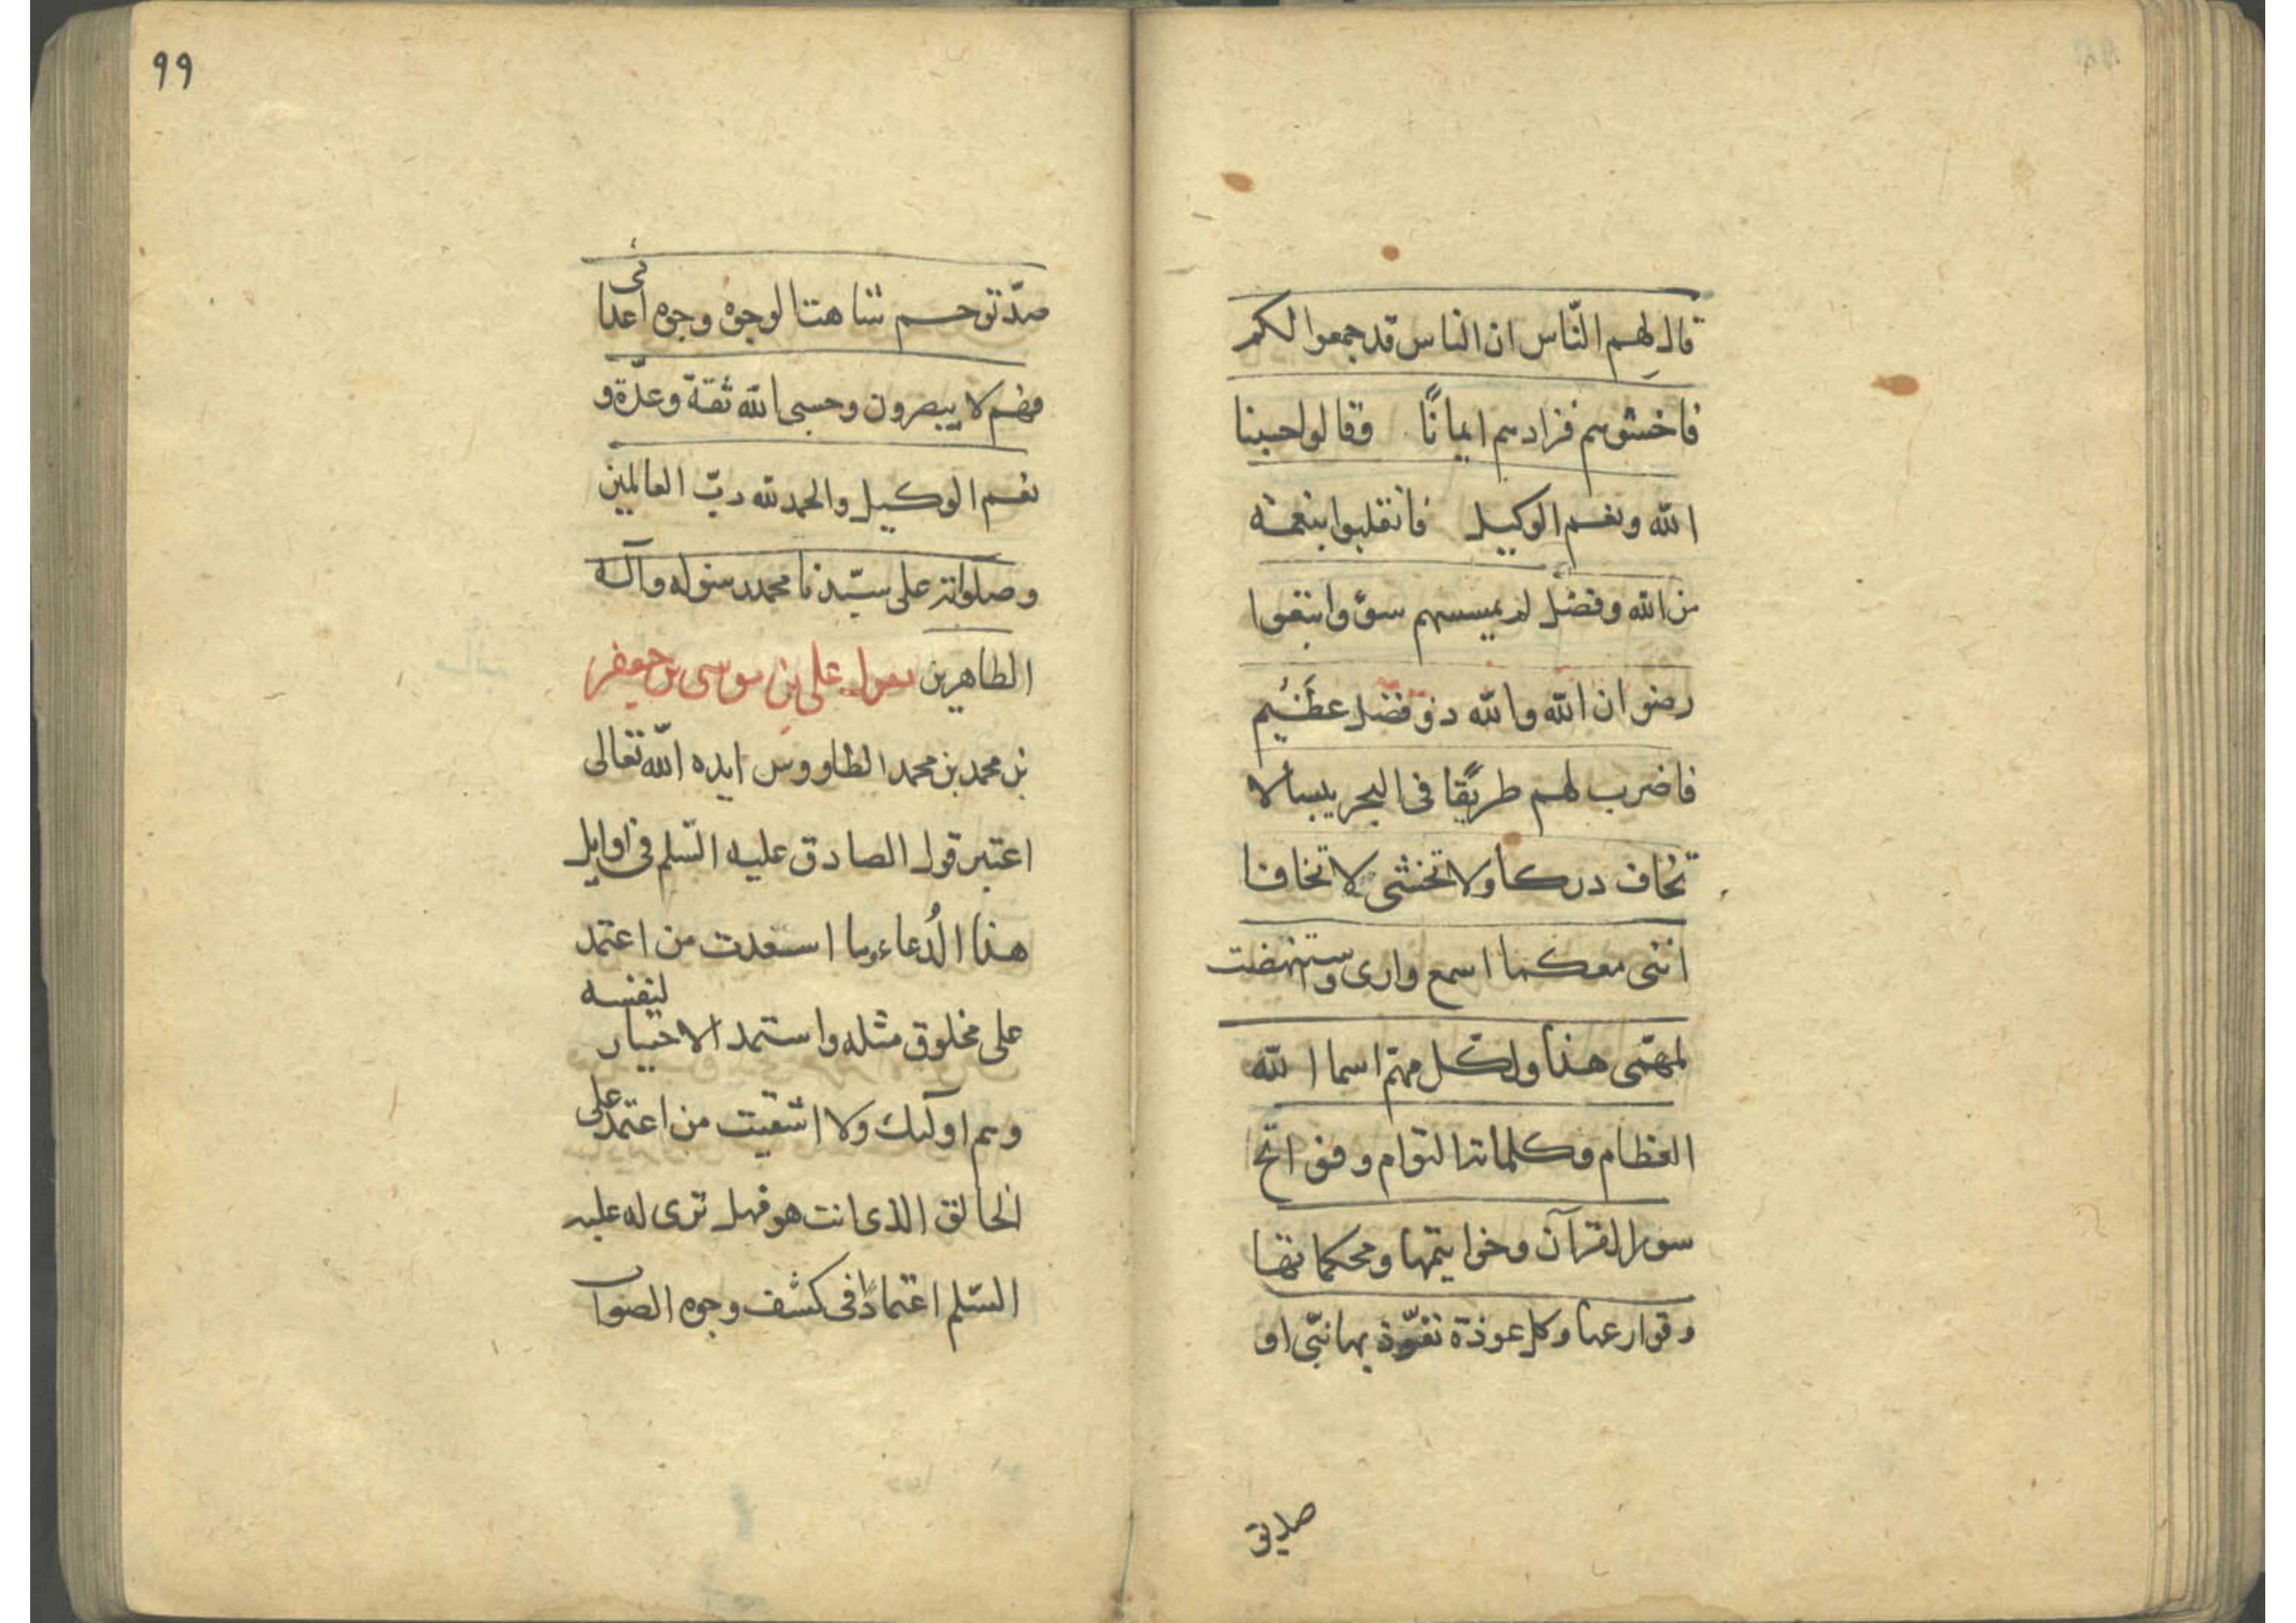 قال لهم الناس ان الناس قد جمعوا لكم
فاخشوهم فزادهم ايمانًا وقالوا حسبنا
الله ونعم الوكيل فانقلبوا بنعمة
من الله وفضل لم يمسسهم سوء واتبعوا
رضوان الله والله ذو فضل عظيم
فاضرب لهم طريقًا فى البحر يبسا لا
تخاف دركا ولا تخشى لا تخافا
اننى معكما اسمع وارى واستنهضت
لمهمّى هذا ولكل مهم اسما الله
العظام وكلماته التوام وفواتح
سور القرآن وخواتيمها ومحكماتها
وقوارعها وكل عوذة تعوّذ بها نبّى او
صديق
٩٩
صدّيق حم شاهت الوجوه وجوه اعدائى
فهم لا يبصرون وحسبى الله ثقة وعدّة و
نعم الوكيل والحمد لله ربّ العالمين
وصلواته على سيّدنا محمد رسوله وآله
الطاهرين يقول على بن موسى بن جعفر
بن محمد بن محمد الطاووس ايده الله تعالى
اعتبر قول الصادق عليه السّلم فى اوايل
هذا الدُعاء ما اسعدت من اعتمد
على مخلوق مثله واستمد الاختيار لنفسه
وهم اولئك ولا اشقيت من اعتمد على
الخالق الذى انت هو فهل ترى له عليه
السّلم اعتمادًا فى كشف وجوه الصواب